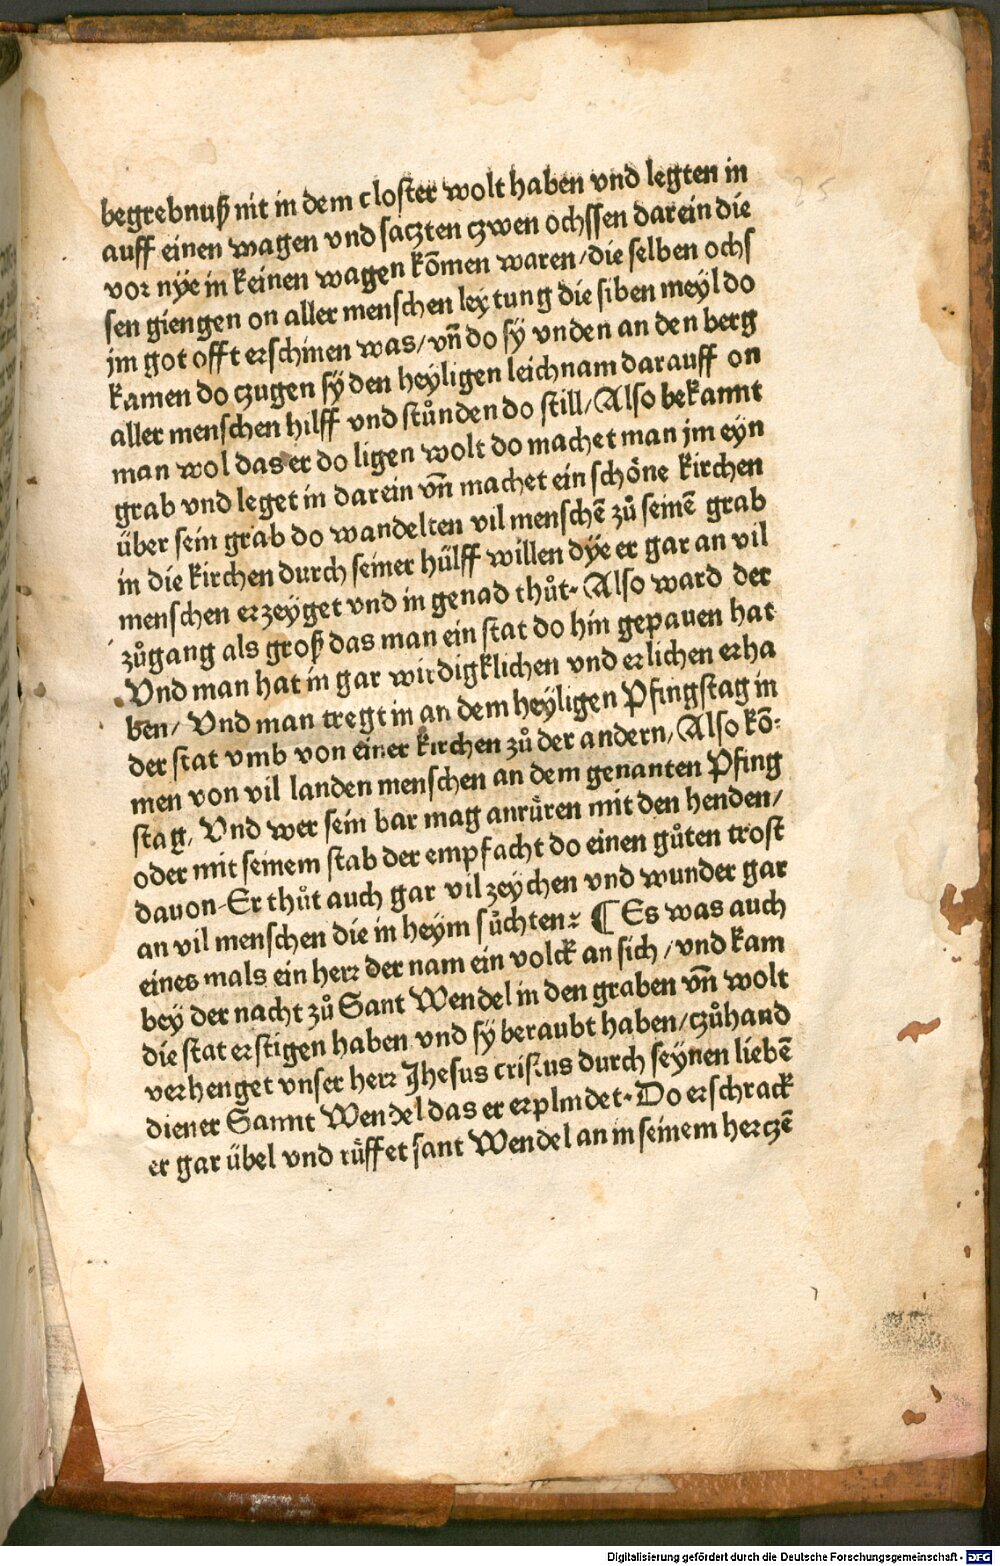 25
begrebnuß nit in dem closter wolt haben vnd legten in
auff einen wagen vnd saczten czwen ochssen darein die
vor nÿe in keinen wagen kōmen waren/die selben ochs
sen giengen on aller menschen leytung die siben meyl do
jm got offt erschinen was/vn̄ do sÿ vnden an den berg
kamen do czugen sÿ den heyligen leichnam darauff on
aller menschen hilff vnd stůnden do still/Also bekannt
man wol das er do ligen wolt do machet man jm eyn
grab vnd leget in darein vn̄ machet ein schöne kirchen
über sein grab do wandelten vil menschē zů seinē grab
in die kirchen durch seiner hülff willen dÿe er gar an vil
menschen erzeyget vnd in genad thůt. Also ward der
zůgang als groß das man ein stat do hin gepauen hat
Vnd man hat in gar wirdigklichen vnd erlichen erha
ben/ Vnd man tregt in an dem heyligen Pfingstag in
der stat vmb von einer kirchen zů der andern/Also kō⸗
men von vil landen menschen an dem genanten Pfing
stag, Vnd wer sein bar mag anrůren mit den henden/
oder mit seinem stab der empfacht do einen gůten trost
dauon. Er thůt auch gar vil zeychen vnd wunder gar
an vil menschen die in heym sůchten: ¶ Es was auch
eines mals ein herr der nam ein volck an sich/vnd kam
bey der nacht zů Sant Wendel in den graben vn̄ wolt
die stat erstigen haben vnd sÿ beraubt haben/czůhand
verhenget vnser herr Jhesus cristus durch seynen liebē
diener Sannt Wendel das er erplindet. Do erschrack
er gar übel vnd růffet sant Wendel an in seinem herczē
Digitalisierung gefördert durch die Deutsche Forschungsgemeinschaft - DFG